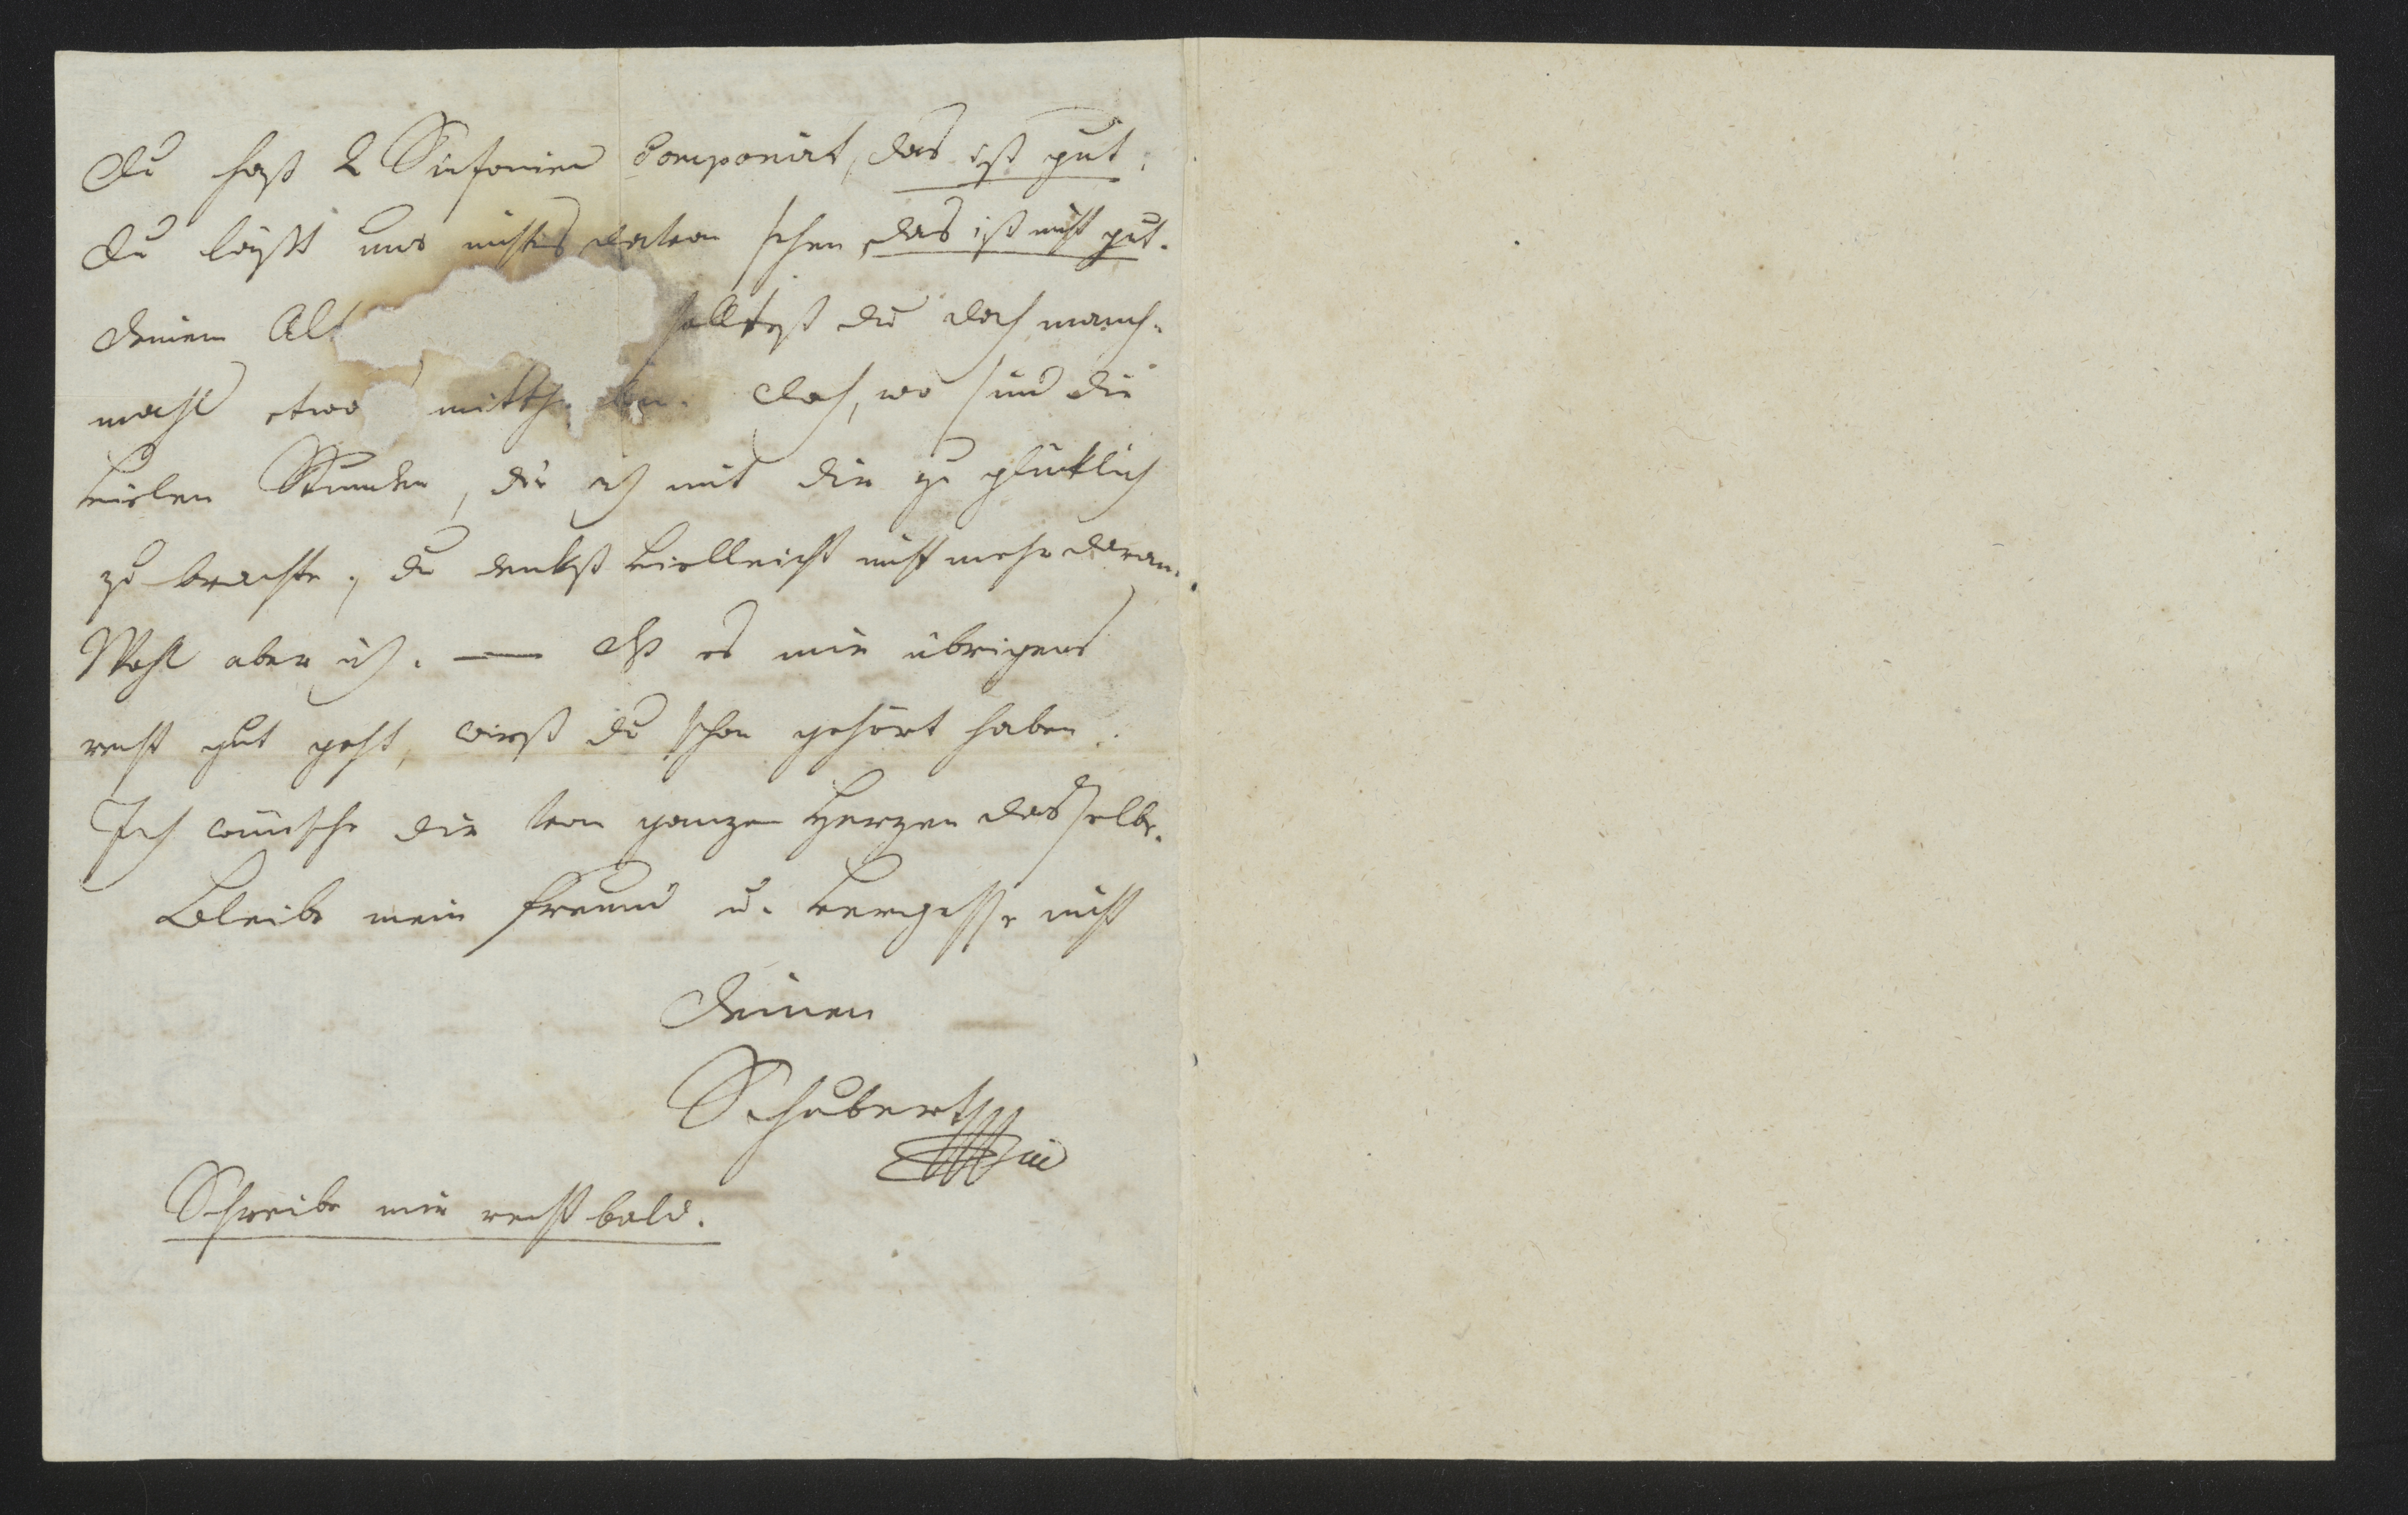 Du hast 2 Sinfonien componirt, das ist gut;
Du läßt uns nichts davon sehen, das ist nicht gut.
Deinem Alt
solltest du doch manch-
mahl etwa mitth len. Doch, wo sind die
vielen Stunden, die ich mit dir so glücklich
zu brachte, du denkst vielleicht nicht mehr daran.
Wohl aber ich. — Daß es mir übrigens
recht gut geht, wirst du schon gehört haben.
Ich wünsche dir von ganzen Herzen dasselbe.
Bleibe mein Freund u. vergesse nicht
Deinen
Schubert
Schreibe mir recht bald.